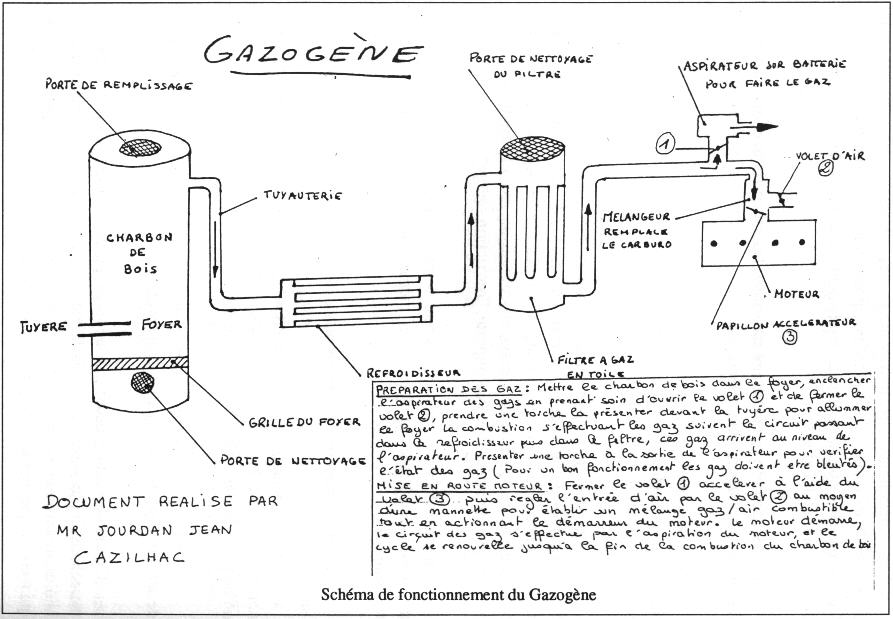 GAZOGÈNE
PORTE DE REMPLISSAGE
PORTE DE NETTOYAGE
DU FILTRE
ASPIRATEUR SUR BATTERIE
POUR FAIRE LE GAZ
1
VOLET D'AIR
2
TUYAUTERIE
CHARBON
DE
BOIS
MELANGEUR
REMPLACE
LE CARBURO
TUYERE
FOYER
MOTEUR
PAPILLON ACCELERATEUR
3
REFROIDISSEUR
FILTRE A GAZ
EN TOILE
GRILLE DU FOYER
PORTE DE NETTOYAGE
PREPARATION DES GAZ : Mettre le charbon de bois dans le foyer, enclencher
l'aspirateur des gazs en prenant soin d'ouvrir le volet 1 et de fermer le
volet 2, prendre une torche la présenter devant la tuyère pour allummer
le foyer la combustion s'effectuant les gaz suivent le circuit passant
dans le refroidisseur puis dans le filtre, ces gaz arrivent au niveau de
l'aspirateur. Presenter une torche à la sortie de l'aspirateur pour verifier
l'état des gaz (Pour un bon fonctionnement les gaz doivent etre bleutés).
MISE EN ROUTE MOTEUR : Fermer le volet 1 accelerer à l'aide du
volet 3 puis regler l'entrée d'air par le volet 2 au moyen
d'une mannette pour établir un mélange gaz/air combustible
tout en actionnant le démarreur du moteur. Le moteur démarre,
le circuit des gaz s'effectue par l'aspiration du moteur, et le
cycle se renouvelle jusqu'à la fin de la combustion du charbon de bois
DOCUMENT REALISE PAR
MR JOURDAN JEAN
CAZILHAC
Schéma de fonctionnement du Gazogène